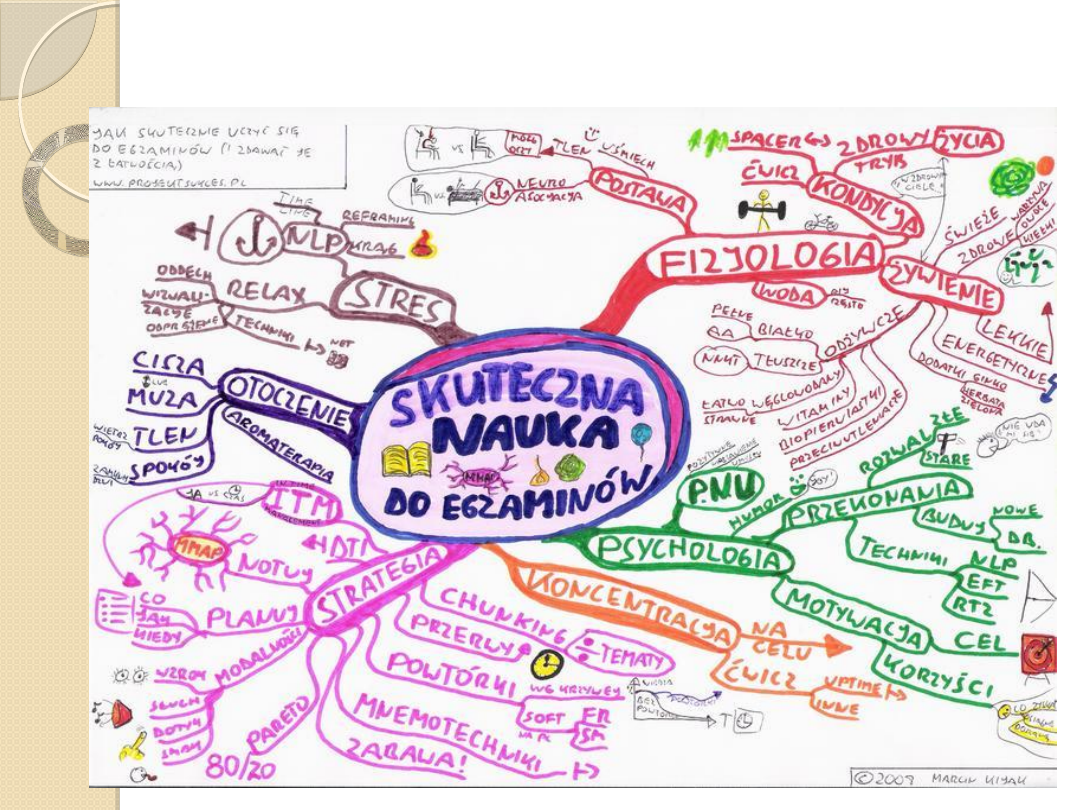 JAK SKUTECZNIE UCZYĆ SIĘ
DO EGZAMINÓW (I ZDAWAĆ JE
Z ŁATWOŚCIĄ)
WWW.PROJEKTSUKCES.PL
SKUTECZNA
NAUKA
DO EGZAMINÓW
MMAP
FIZJOLOGIA
POSTAWA
TLEN
UŚMIECH
VS
NEURO
ASOCJACJA
KONDYCJA
SPACER
ZDROWY
TRYB
ŻYCIA
ĆWICZ
ŻYWIENIE
ŚWIEŻE
ZDROWE
WARZYWA
OWOCE
KIEŁKI
LEKKIE
ENERGETYCZNE
DODATKI GINKO
HERBATA
ZIELONA
WODA
ODŻYWCZE
BIAŁKO
PEŁNE
AA
TŁUSZCZE
NNKT
WĘGLOWODANY
ŁATWO
STRAWNE
WITAMINY
BIOPIERWIASTKI
PRZECIWUTLENIACZE
PSYCHOLOGIA
PNU
HUMOR
PRZEKONANIA
ROZWAL
ZŁE
STARE
BUDUJ
NOWE
DB.
TECHNIKI
NLP
EFT
RTZ
MOTYWACJA
CEL
KORZYŚCI
KONCENTRACJA
NA
CELU
ĆWICZ
UPTIME
INNE
STRATEGIA
ITM
JA VS CZAS
DTI
NOTUJ
MMAP
PLANUJ
CO
JAK
KIEDY
MODALNOŚCI
WZROK
SŁUCH
DOTYK
SMAK
PARETO
80/20
ZABAWA!
MNEMOTECHNIKI
POWTÓRKI
WG KRZYWEJ
SOFT
NA PC
FR
SM
PRZERWY
CHUNKING
TEMATY
OTOCZENIE
CISZA
LUB
MUZA
TLEN
WIETRZ
POKÓJ
SPOKÓJ
AROMATERAPIA
STRES
NLP
TIME
LINE
REFRAMING
KRĄG
RELAX
ODDECH
WIZUALI-
ZACJE
ODPRĘŻENIE
TECHNIKI
© 2009 MARCIN KIJAK